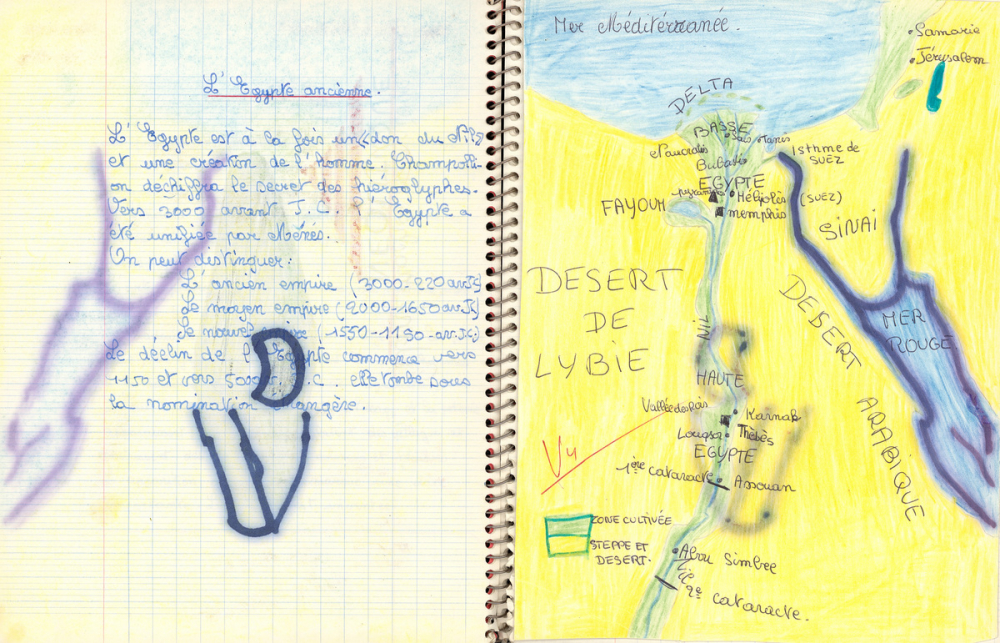 L'Egypte ancienne.
L'Egypte est à la fois un "don du Nil"
et une creation de l'homme. Champolli-
on déchiffra le secret des hiéroglyphes.
Vers 3000 avant J.C. l'Égypte a
été unifiée par Ménes.
On peut distinguer:
L'ancien empire (3000-220 av.JC)
Le moyen empire (2000-1650 av.JC)
Le nouvel empire (1550-1150-av.JC)
Le déclin de l'Egypte commence vers
1150 et vers 500 J.C. elle tombe sous
la nomination étrangère.
Mer Méditérranée.
Samarie
Jérusalem
DELTA
BASSE
Saïs
Tanis
Naucratis
Bubastis
Isthme de
SUEZ
EGYPTE
pyramides
Héliopolis
(SUEZ)
FAYOUM
memphis
SINAI
DESERT
DE
LYBIE
DESERT
ARABIQUE
MER
ROUGE
NIL
HAUTE
Vallée des rois
Karnak
Louqsor
Thèbès
EGYPTE
Vu
1ère cataracte
Assouan
ZONE CULTIVÉE
STEPPE ET
DESERT.
Abou Simbel
2e cataracte.